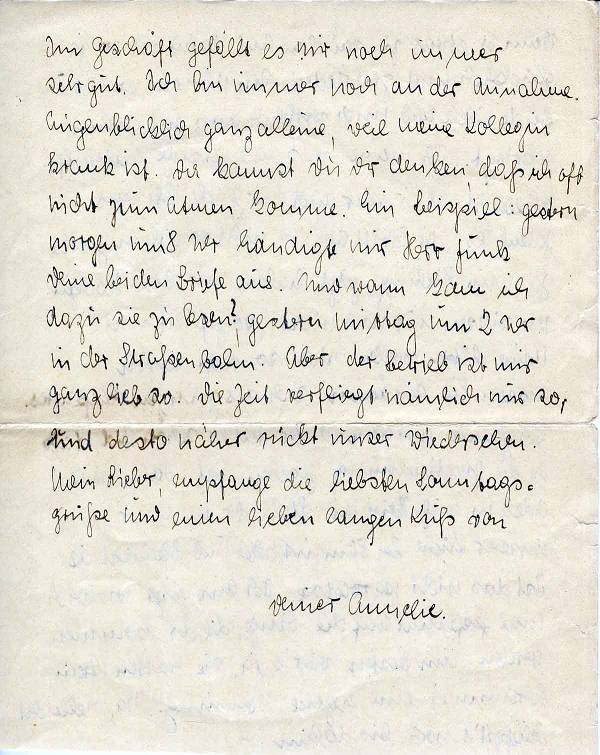 Im Geschäft gefällt es mir noch immer
sehr gut. Ich bin immer noch an der Annahme.
Augenblicklich ganz alleine, weil meine Kollegin
krank ist. Da kannst du dir denken, daß ich oft
nicht zum Atmen komme. Ein Beispiel: gestern
morgen um 8 Uhr händigte mir Herr Funk
deine beiden Briefe aus. Und wann kam ich
dazu sie zu lesen? gestern mittag um 2 Uhr
in der Straßenbahn. Aber der Betrieb ist mir
ganz lieb so. Die Zeit verfliegt nämlich nur so,
und desto näher rückt unser Wiedersehen.
Mein Lieber, empfange die liebsten Sonntags-
grüße und einen lieben langen Kuß von
deiner Annelie.